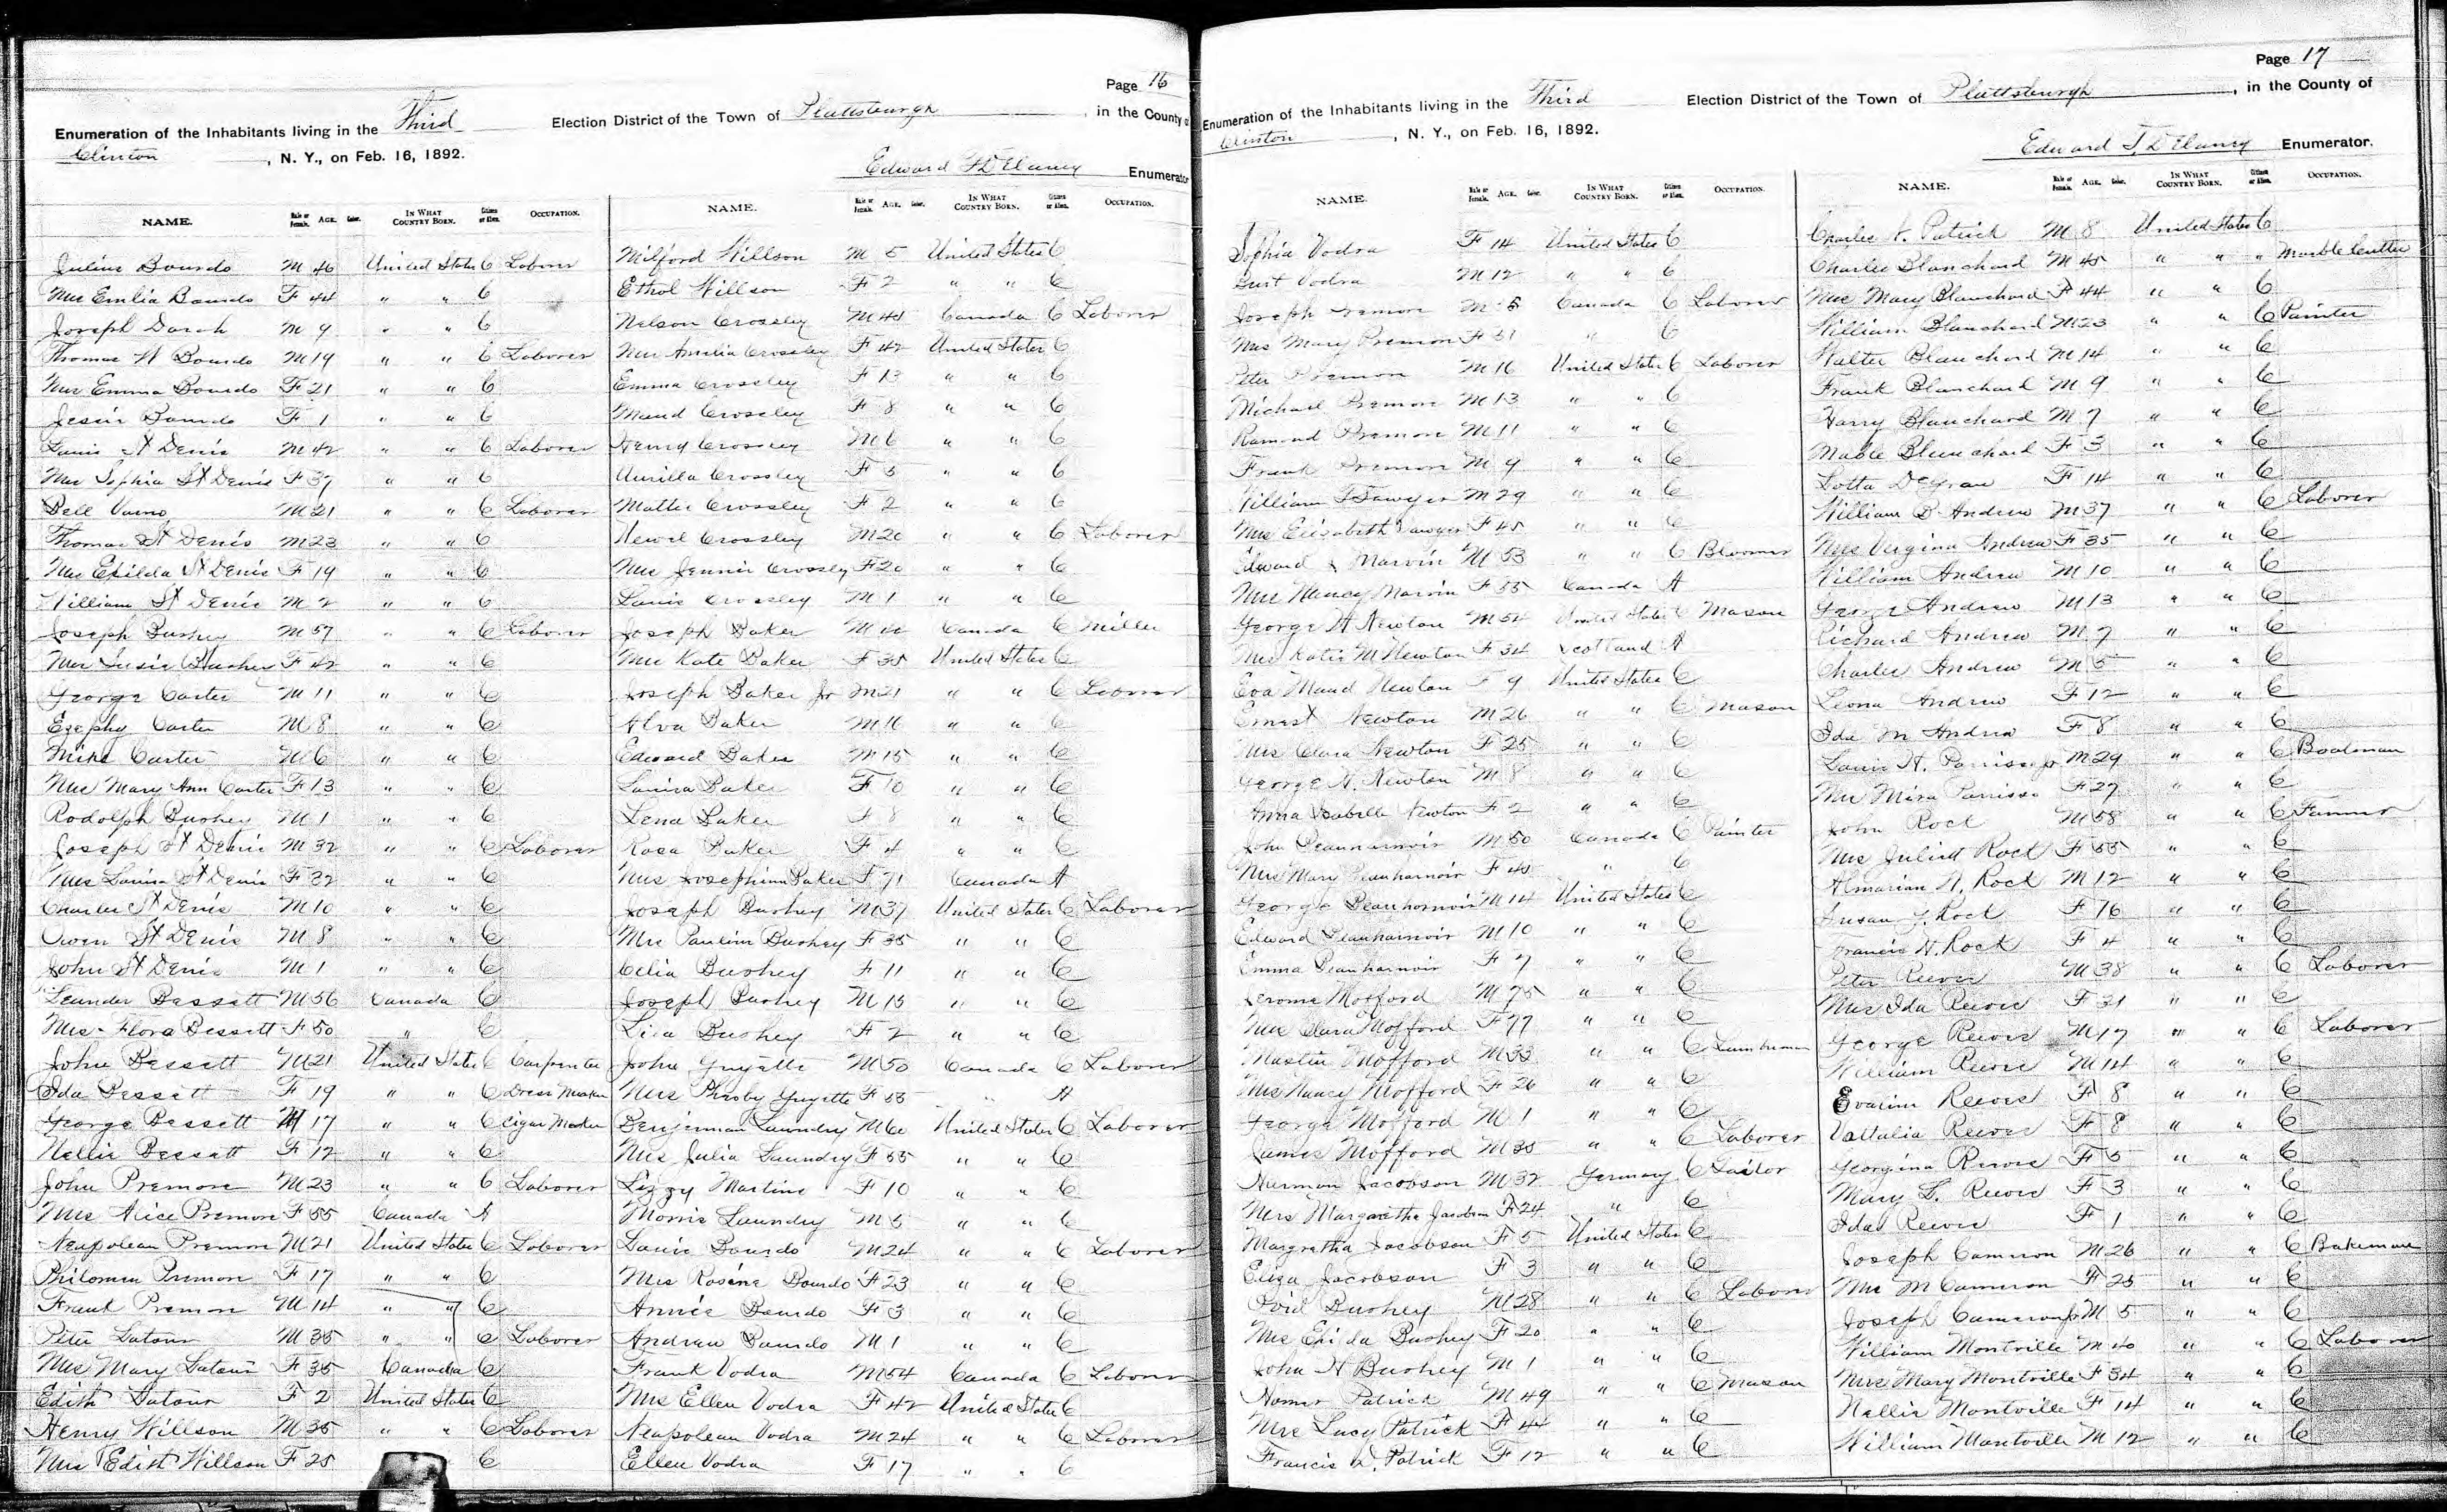 Page 16
Enumeration of the Inhabitants living in the Third Election District of the Town of Plattsburgh, in the County
Clinton, N. Y., on Feb. 16, 1892.
Edward F Delaney Enumerator
NAME. Male or Female. AGE. Color. IN WHAT COUNTRY BORN. Citizen or Alien. OCCUPATION.
Julius Bourdo M 46 United States C Laborer
Mrs Emlia Bourdo F 44 " " C
Joseph M 9 " " C
Thomas W Bourdo M 19 " " C Laborer
Mrs Emma Bourdo F 21 " " C
Jesin Bourdo F 1 " " C
Louis St Denis M 42 " " C Laborer
Mrs Sophia St Denis F 37 " " C
Bell M 21 " " C Laborer
Thomas St Denis M 23 " " C
Mrs Exilda St Denis F 19 " " C
William St Denis M 2 " " C
Joseph Bushey M 57 " " C Laborer
Mrs Susie Bushey F 42 " " C
George Carter M 11 " " C
Ezephy Carter M 8 " " C
Mike Carter M 6 " " C
Mrs Mary Ann Carter F 13 " " C
Rodolph Bushey M 1 " " C
Joseph St Denis M 32 " " C Laborer
Mrs Louisa St Denis F 32 " " C
Charles St Denis M 10 " " C
Owen St Denis M 8 " " C
John St Denis M 1 " " C
Leander Bessett M 56 Canada C
Mrs Flora Bessett F 50 " C
John Bessett M 21 United States C Carpenter
Ida Bessett F 19 " " C Dress Maker
George Bessett M 17 " " C Cigar Maker
Nellie Bessett F 12 " " C
John Premore M 23 " " C Laborer
Mrs Alice Premore F 55 Canada A
Neapolean Premore M 21 United States C Laborer
Philomen Premon F 17 " " C
Frank Premon M 14 " " C
Peter Latour M 35 " " C Laborer
Mrs Mary Latour F 35 Canada C
Edith Latour F 2 United States C
Henry Willson M 35 " " C Laborer
Mrs Edith Willson F 25 C
NAME. Male or Female. AGE. Color. IN WHAT COUNTRY BORN. Citizen or Alien. OCCUPATION.
Milford Willson M 5 United States C
Ethol Willson F 2 " " C
Nelson Crossley M 45 Canada C Laborer
Mrs Amelia Crossley F 42 United States C
Emma Crossley F 13 " " C
Maud Crossley F 8 " " C
Henry Crossley M 6 " " C
Aurilla Crossley F 5 " " C
Mattie Crossley F 2 " " C
Newel Crossley M 20 " " C Laborer
Mrs Jennie Crossley F 20 " " C
Louis Crossley M 1 " " C
Joseph Baker M Canada C Miller
Mrs Kate Baker F 35 United States C
Joseph Baker Jr M 21 " " C Laborer
Alva Baker M 16 " " C
Edward Baker M 15 " " C
Louisa Baker F 10 " " C
Lena Baker F 8 " " C
Rosa Baker F 4 " " C
Mrs Josephine Baker F 71 Canada A
Joseph Bushey M 37 United States C Laborer
Mrs Paulin Bushey F 35 " " C
Celia Bushey F 11 " " C
Joseph Bushey M 15 " " C
Lisa Bushey F 2 " " C
John Guyette M 50 Canada C Laborer
Mrs Phoeby Guyette F 55 " A
Benjerman Laundry M 60 United States C Laborer
Mrs Julia Laundry F 55 " " C
Lizzy Martine F 10 " " C
Morris Laundry M 5 " " C
Louis Bourdo M 24 " " C Laborer
Mrs Rosene Bourdo F 23 " " C
Annie Bourdo F 3 " " C
Andrew Bourdo M 1 " " C
Frank Vodra M 54 Canada C Laborer
Mrs Ellen Vodra F 42 United States C
Neapolean Vodra M 24 " " C Laborer
Ellen Vodra F 17 " " C
Page 17
Enumeration of the Inhabitants living in the Third Election District of the Town of Plattsburgh, in the County of
Clinton, N. Y., on Feb. 16, 1892.
Edward F. Delaney Enumerator.
NAME. Male or Female. AGE. Color. IN WHAT COUNTRY BORN. Citizen or Alien. OCCUPATION.
Sophia Vodra F 14 United States C
Vodra M 12 " " C
Joseph Premore M Canada C Laborer
Mrs Mary Premon F 51 " C
Peter Premon M 16 United States C Laborer
Michael Premon M 13 " " C
Ramond Premon M 11 " " C
Frank Premon M 9 " " C
William Sawyer M 29 " " C
Mrs Elisabeth Sawyer F 45 " " C
Edward Marvin M 53 " " C Bloomer
Mrs Nancy Marvin F 55 Canada A
George W Newton M 54 United States C Mason
Mrs Katie M Newton F 34 Scotland A
Eva Maud Newton F 9 United States C
Ernest Newton M 26 " " C Mason
Mrs Clara Newton F 25 " " C
George N. Newton M 8 " " C
Anna Isabelle Newton F 2 " " C
John Beauharnoir M 50 Canada C Painter
Mrs Mary Beauharnoir F 45 " C
George Beauharnoir M 14 United States C
Edward Beauharnoir M 10 " " C
Emma Beauharnoir F 7 " " C
Jerome Mofford M 75 " " C
Mrs Clara Mofford F 77 " " C
Martin Mofford M 33 " " C Lumberman
Mrs Nancy Mofford F 26 " " C
George Mofford M 1 " " C
James Mofford M 35 " " C Laborer
Herman Jacobson M 32 Germany C Tailor
Mrs Margaretha Jacobson F 24 " C
Margretha Jacobson F 5 United States C
Eliza Jacobson F 3 " " C
Ovid Bushey M 28 " " C Laborer
Mrs Exilda Bushey F 20 " " C
John H Bushey M 1 " " C
Homer Patrick M 49 " " C Mason
Mrs Lucy Patrick F 44 " " C
Francis W. Patrick F 12 " " C
NAME. Male or Female. AGE. Color. IN WHAT COUNTRY BORN. Citizen or Alien. OCCUPATION.
Charles Patrick M 8 United States C
Charles Blanchard M 45 " " " Marble Cutter
Mrs Mary Blanchard F 44 " " C
William Blanchard M 23 " " C Painter
Walter Blanchard M 14 " " C
Frank Blanchard M 9 " " C
Harry Blanchard M 7 " " C
Mable Blanchard F 3 " " C
Lotta F 14 " " C
William B Andrew M 37 " " C Laborer
Mrs Vergina Andrew F 35 " " C
William Andrew M 10 " " C
George Andrew M 13 " " C
Richard Andrew M 7 " " C
Charles Andrew M 5 " " C
Leona Andrew F 12 " " C
Ida M Andrew F 8 " " C
Louis H. Parrisso Jr M 29 " " C Boatman
Mrs Mira Parrisso F 27 " " C
John Rock M 58 " " C Farmer
Mrs Juliett Rock F 55 " " C
Almarian N. Rock M 12 " " C
Susan J. Rock F 16 " " C
Francis H. Rock F 4 " " C
Peter Reeves M 38 " " C Laborer
Mrs Ida Reeves F 31 " " C
George Reeves M 17 " " C Laborer
William Reeves M 14 " " C
Evarim Reeves F 8 " " C
Vattalia Reeves F 8 " " C
Georgina Reeves F 5 " " C
Mary L. Reeves F 3 " " C
Ida Reeves F 1 " " C
Joseph Cameron M 26 " " C Brakeman
Mrs M Cameron F 25 " " C
Joseph Cameron Jr M 5 " " C
William Montville M 40 " " C Laborer
Mrs Mary Montville F 34 " " C
Nellie Montville F 14 " " C
William Montville M 12 " " C